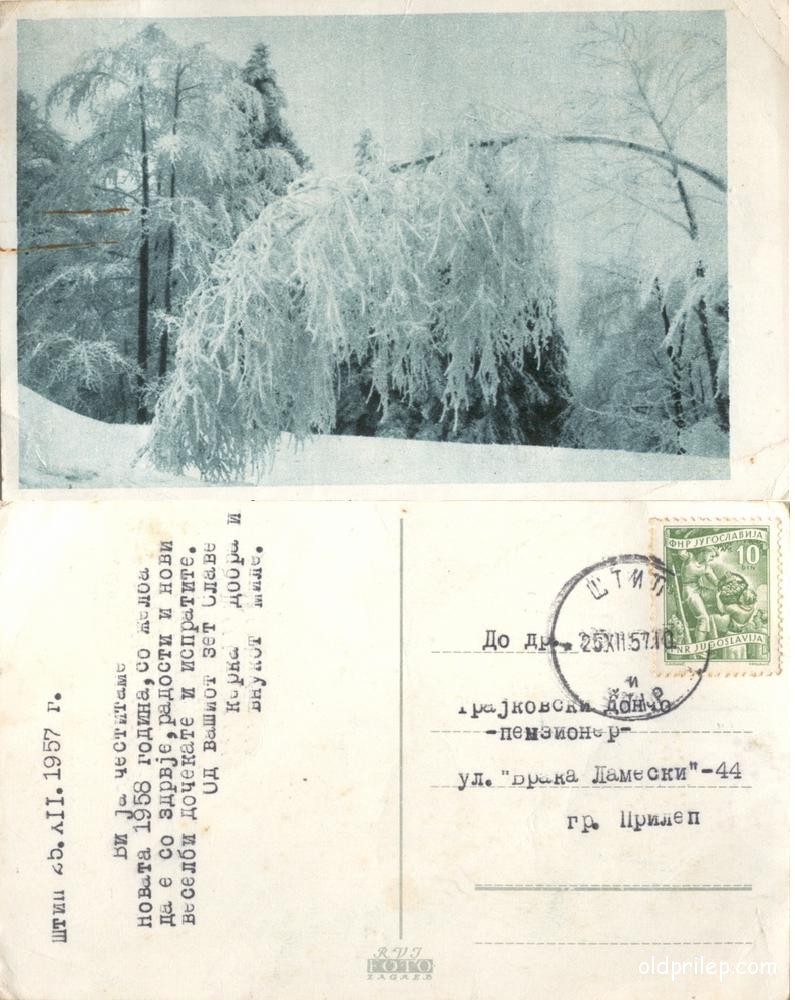 Штип 25.XII.1957 г.
Ви ја честитаме
новата 1958 година, со желба
да е со здрвје, радости и нови
веселби дочекате и испратите.
Од вашиот зет Славе
Ќерка Добра и
внукот Миле.
ФНР ЈУГОСЛАВИЈА
10
DIN
FNR JUGOSLAVIJA
ШТИП
25XII57.10
До др.
и
Трајковски Дончо
-пензионер-
ул. "Браќа Ламески"-44
гр. Прилеп
RVI
FOTO
ZAGREB
oldprilep.com